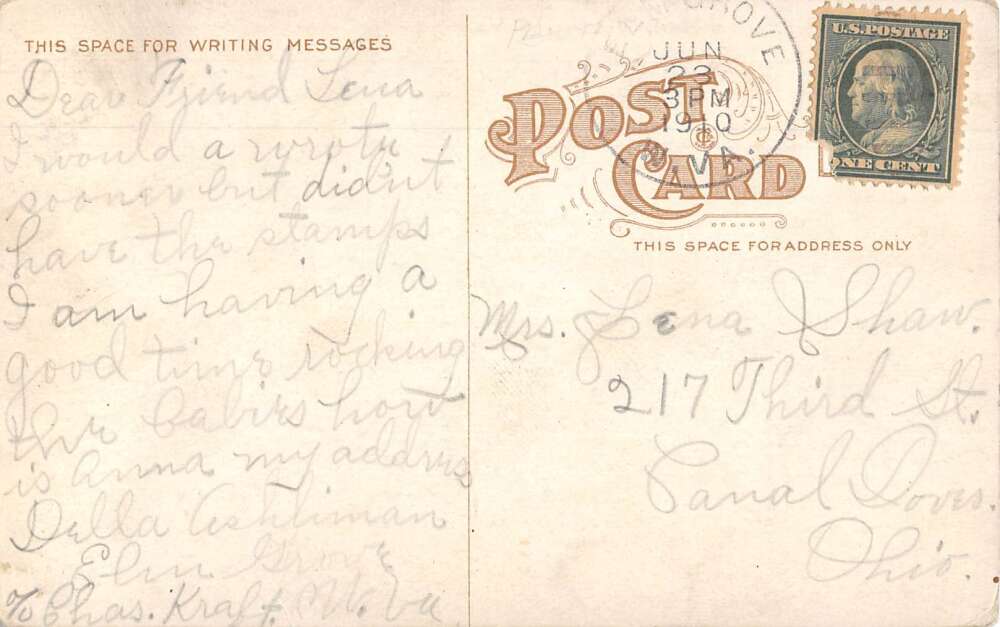 THIS SPACE FOR WRITING MESSAGES
Dear Friend Lena
I would a wrote
sooner but didn't
have the stamps
I am having a
good time rocking
the babies how
is Anna my address
Della Ashliman
Elm Grove
c/o Chas. Kraft. W. Va
GROVE
JUN
23
3 PM
1910
W. VA.
U.S. POSTAGE
ONE CENT
POST
CARD
THIS SPACE FOR ADDRESS ONLY
Mrs. Lena Shaw.
217 Third St.
Canal Dover.
Ohio.